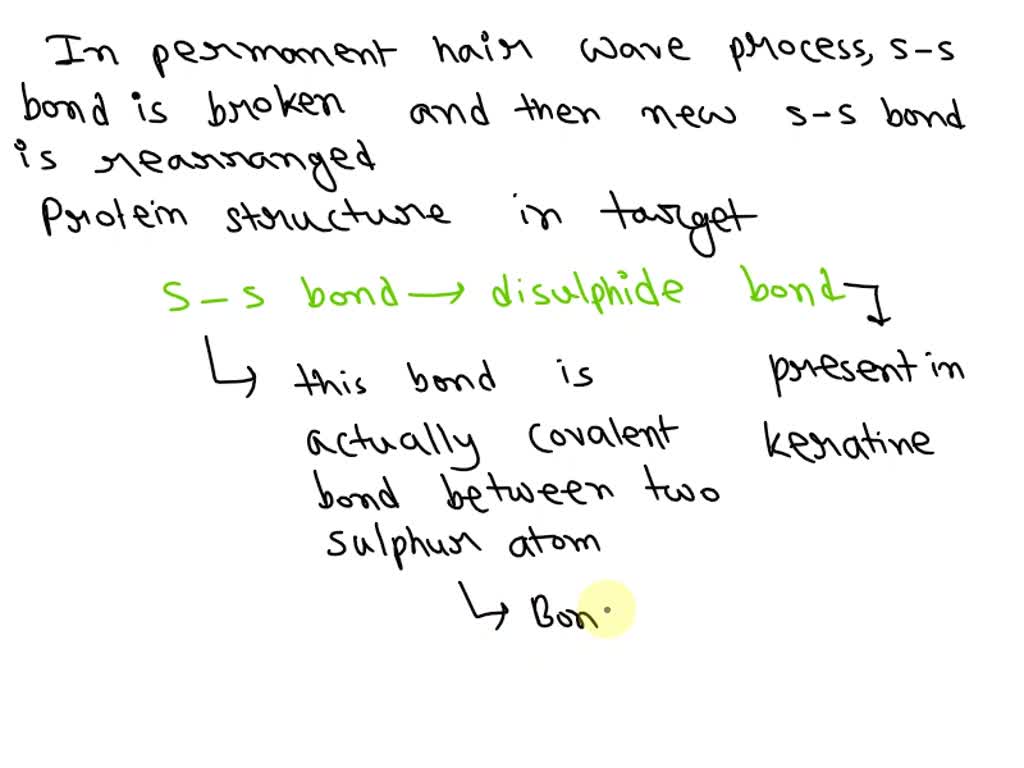 In permanent hair wave process, s-s
bond is broken and then new s-s bond
is rearranged
Protein structure in target
S-s bond → disulphide bond
↳ this bond is
actually covalent
bond between two
sulphur atom
present in
keratine
↳ Bon